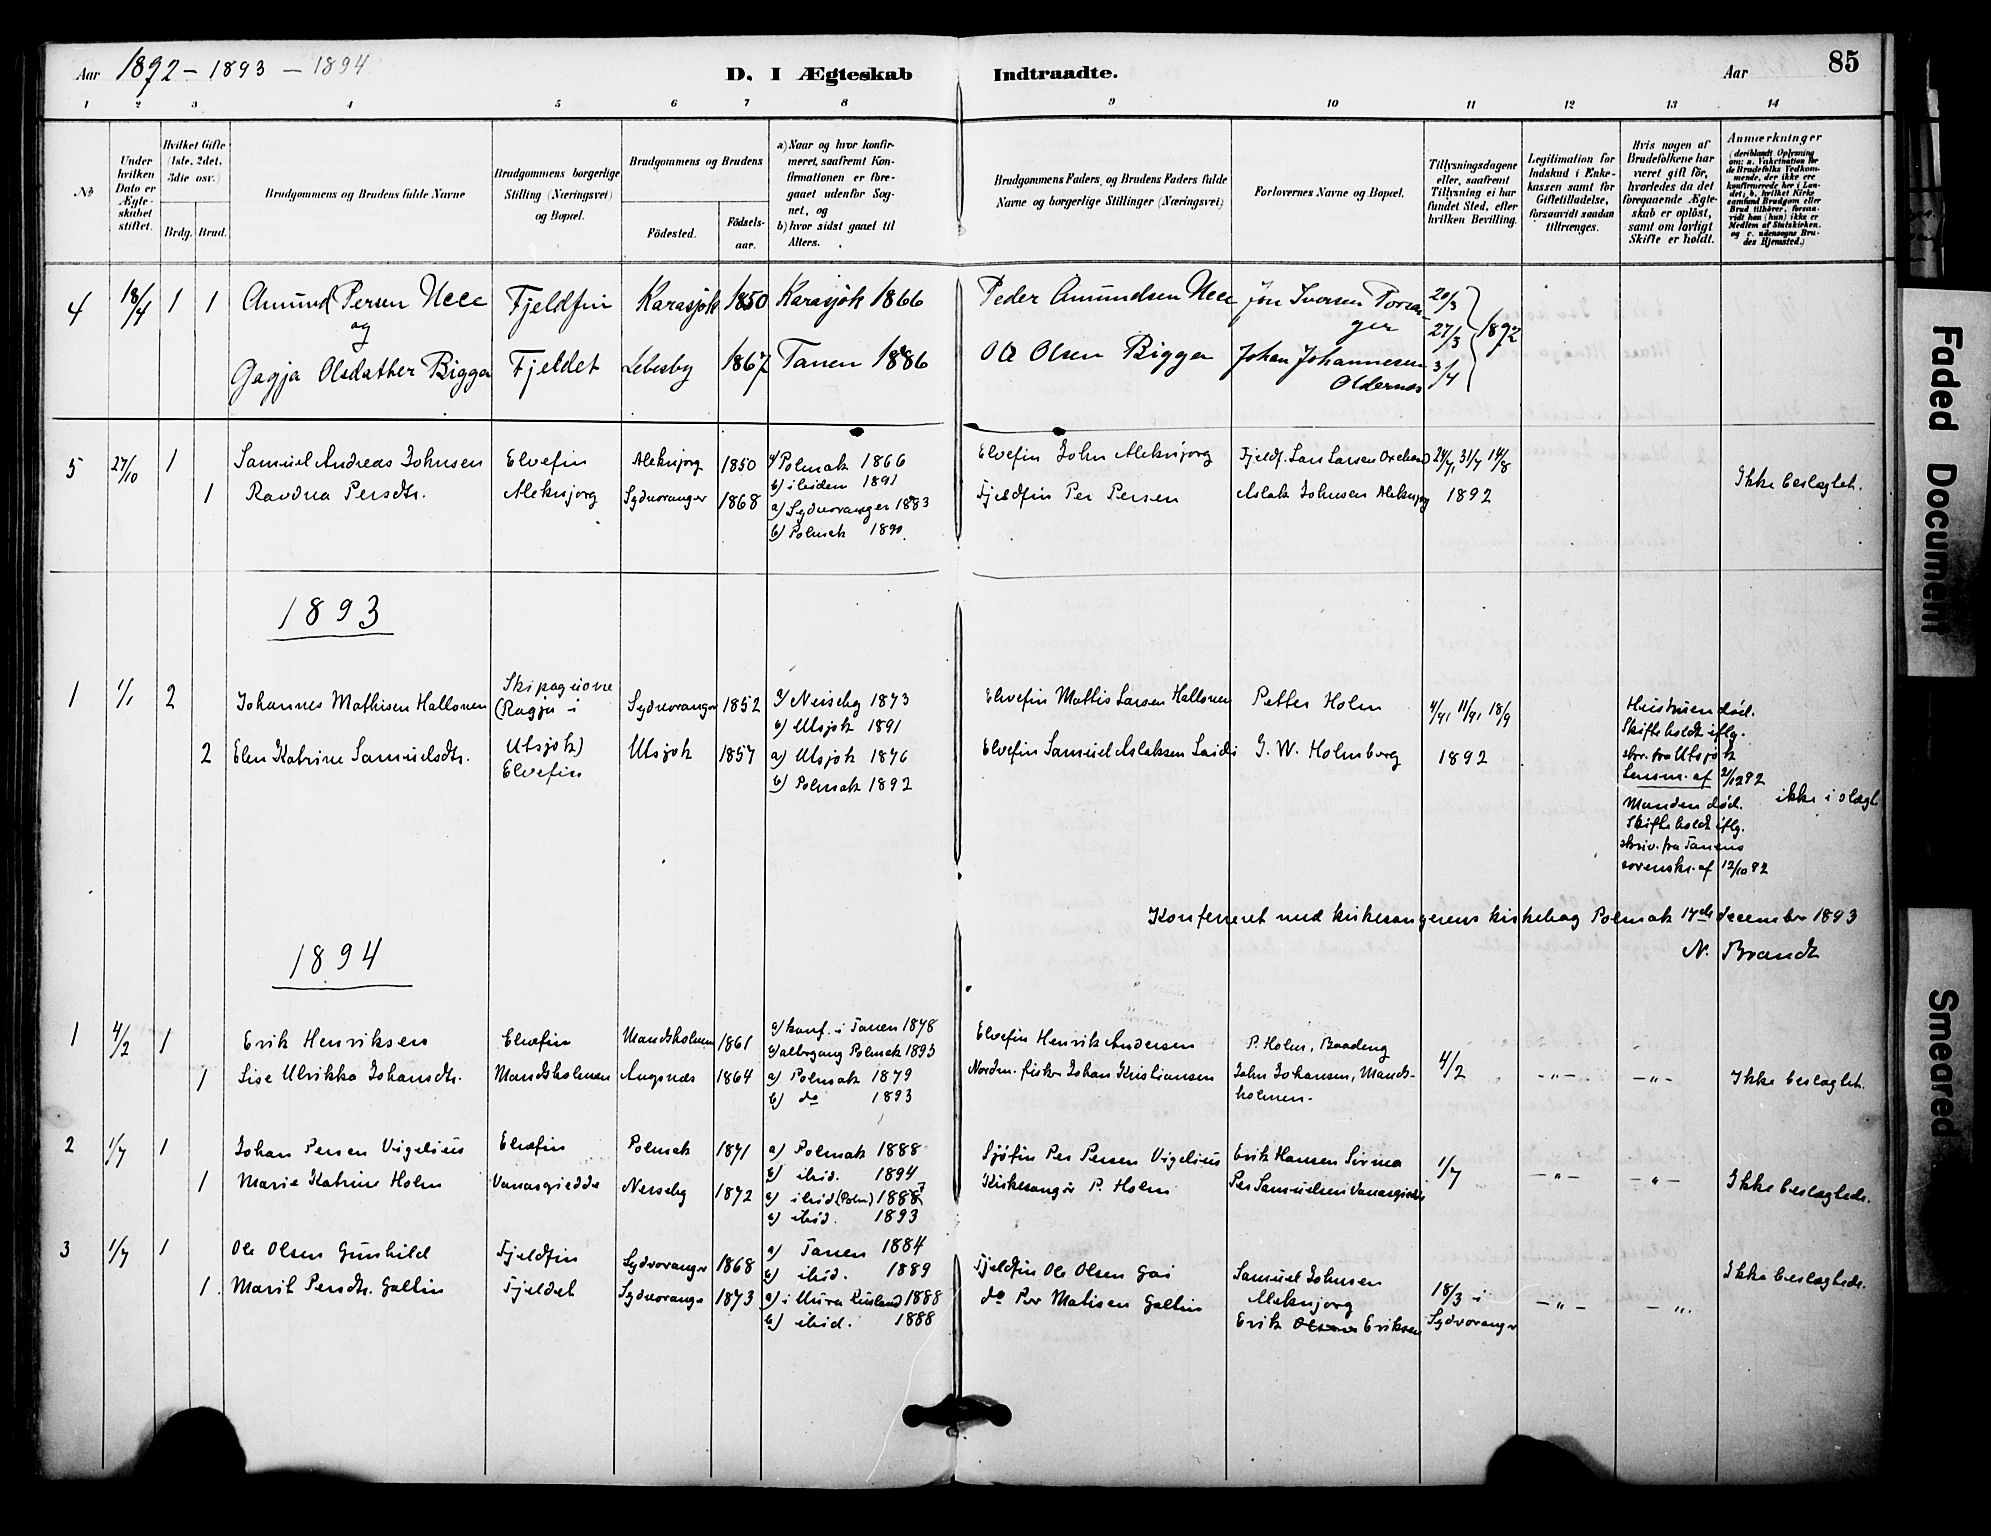 Aar 1892 - 1893 - 1894
D. I Ægteskab Indtraadte.
Aar
85
1 2 3 4 5 6 7 8 9 10 11 12 13 14
No
Under hvilken Dato er Ægteskabet stiftet.
Hvilket Gifte (1ste, 2det, 3die osv.)
Brdg. Brud.
Brudgommens og Brudens fulde Navne
Brudgommens borgerlige Stilling (Næringsvei) og Bopæl.
Brudgommens og Brudens
Födested.
Födsels-aar.
a) Naar og hvor konfirmeret, saafremt Konfirmationen er foregaaet udenfor Sognet, og
b) hvor sidst gaaet til Alters.
Brudgommens Faders og Brudens Faders fulde Navne og borgerlige Stillinger (Næringsvei)
Forlovernes Navne og Bopæl.
Tillysningsdagene eller, saafremt Tillysning ei har fundet Sted, efter hvilken Bevilling.
Legitimation for Indskud i Enkekassen samt for Giftetilladelse, forsaavidt saadan tiltrænges.
Hvis nogen af Brudefolkene har været gift för, hvorledes da det foregaaende Ægteskab er oplöst, samt om lovligt Skifte er holdt.
Anmærkninger
(deriblandt Oplysning om: a. Vakcination for de Brudefolks Vedkommende, der ikke ere konfirmerede her i Landet; b. hvilket Kirkesamfund Brudgom eller Brud tilhörer, forsaavidt han (hun) ikke er Medlem af Statskirken, og c. udensogns Brudes Hjemsted.)
4 18/4 1 1 Amund Persen Utce Fjeldfin Karasjok 1850 Karasjok 1866 Peder Amundsen Utce Jon Iversen Porsanger 20/3 27/3 1892
og
Gagja Olsdatter Bigga Fjeldet Lebesby 1867 Tanen 1886 Ole Olsen Bigga Johan Johannesen Oldernæs 3/4
5 27/10 1 Samuel Andreas Johnsen Elvefin Aleknjarg 1850 a) Polmak 1866 Elvefin John Aleknjarg Fjeldf. Lars Larsen 24/7, 31/7 14/8
b) ibidem 1891
1 Ravdna Persdtr. Aleknjarg Sydvaranger 1868 a) Sydvaranger 1883 Fjeldfin Per Persen Aslak Johnsen Aleknjarg 1892 Ikke beslægtet.
b) Polmak 1890.
1893
1 1/1 2 Johannes Mathisen Hallonen Skipagurra (Ragja i Utsjok) Sydvaranger 1852 a) Nesseby 1873 Elvefin Mattis Larsen Hallonen Petter Holm 4/9, 11/9, 18/9
b) Utsjok 1891
2 Elen Katrine Samuelsdtr. Elvefin Utsjok 1857 a) Utsjok 1876 Elvefin Samuel Aslaksen Laiti G. W. Holmberg 1892
b) Polmak 1892
Hustruen död.
Skifte holdt iflg.
skr. fra Utsjok
Lensm. af 2/12 92
Manden död. ikke i slægt
Skifte holdt iflg.
skriv. fra Tanens
sorenskr. af 12/10 92
Konfereret med kirkesangerens kirkebog Polmak 17de december 1893
N. Brandt
1894
1 4/2 1 Erik Henriksen Elvefin Mandsholmen 1861 a) konf. i Tanen 1878 Elvefin Henrik Andersen P. Holm, Baadeng
b) altergang Polmak 1893
1 Lise Ulrikka Johansdtr. Mandsholmen Angsnæs 1864 a) Polmak 1879 Nordm. fisker Johan Kristiansen John Johansen, Mands- 4/2 -"- -"- Ikke beslægtet.
b) do 1893 holmen.
2 1/7 1 Johan Persen Vigelius Elvefin Polmak 1871 a) Polmak 1888 Sjöfin Per Persen Vigelius Erik Hansen Sirma 1/7
b) ibid. 1894
1 Marie Katrine Holm Vanasgiedde Nesseby 1872 a) ibid (Polm) 1888 Kirkesanger P. Holm Per Samuelsen Vanasgiedde -"- -"- Ikke beslægtede.
b) ibid. 1893
3 1/7 1 Ole Olsen Gunhild Fjeldfin Sydvaranger 1868 a) Tanen 1884 Fjeldfin Ole Olsen Gai Samuel Johnsen
b) ibid. 1889 Aleknjarg
1 Marit Persdtr. Galtin Fjeldet Sydvaranger 1873 a) i 1888 do Per Matisen Galtin Erik Olsen Eriksen 18/3 i Sydvaranger -"- -"- Ikke beslægtede.
b) ibid. 1888
Faded Document
Smeared